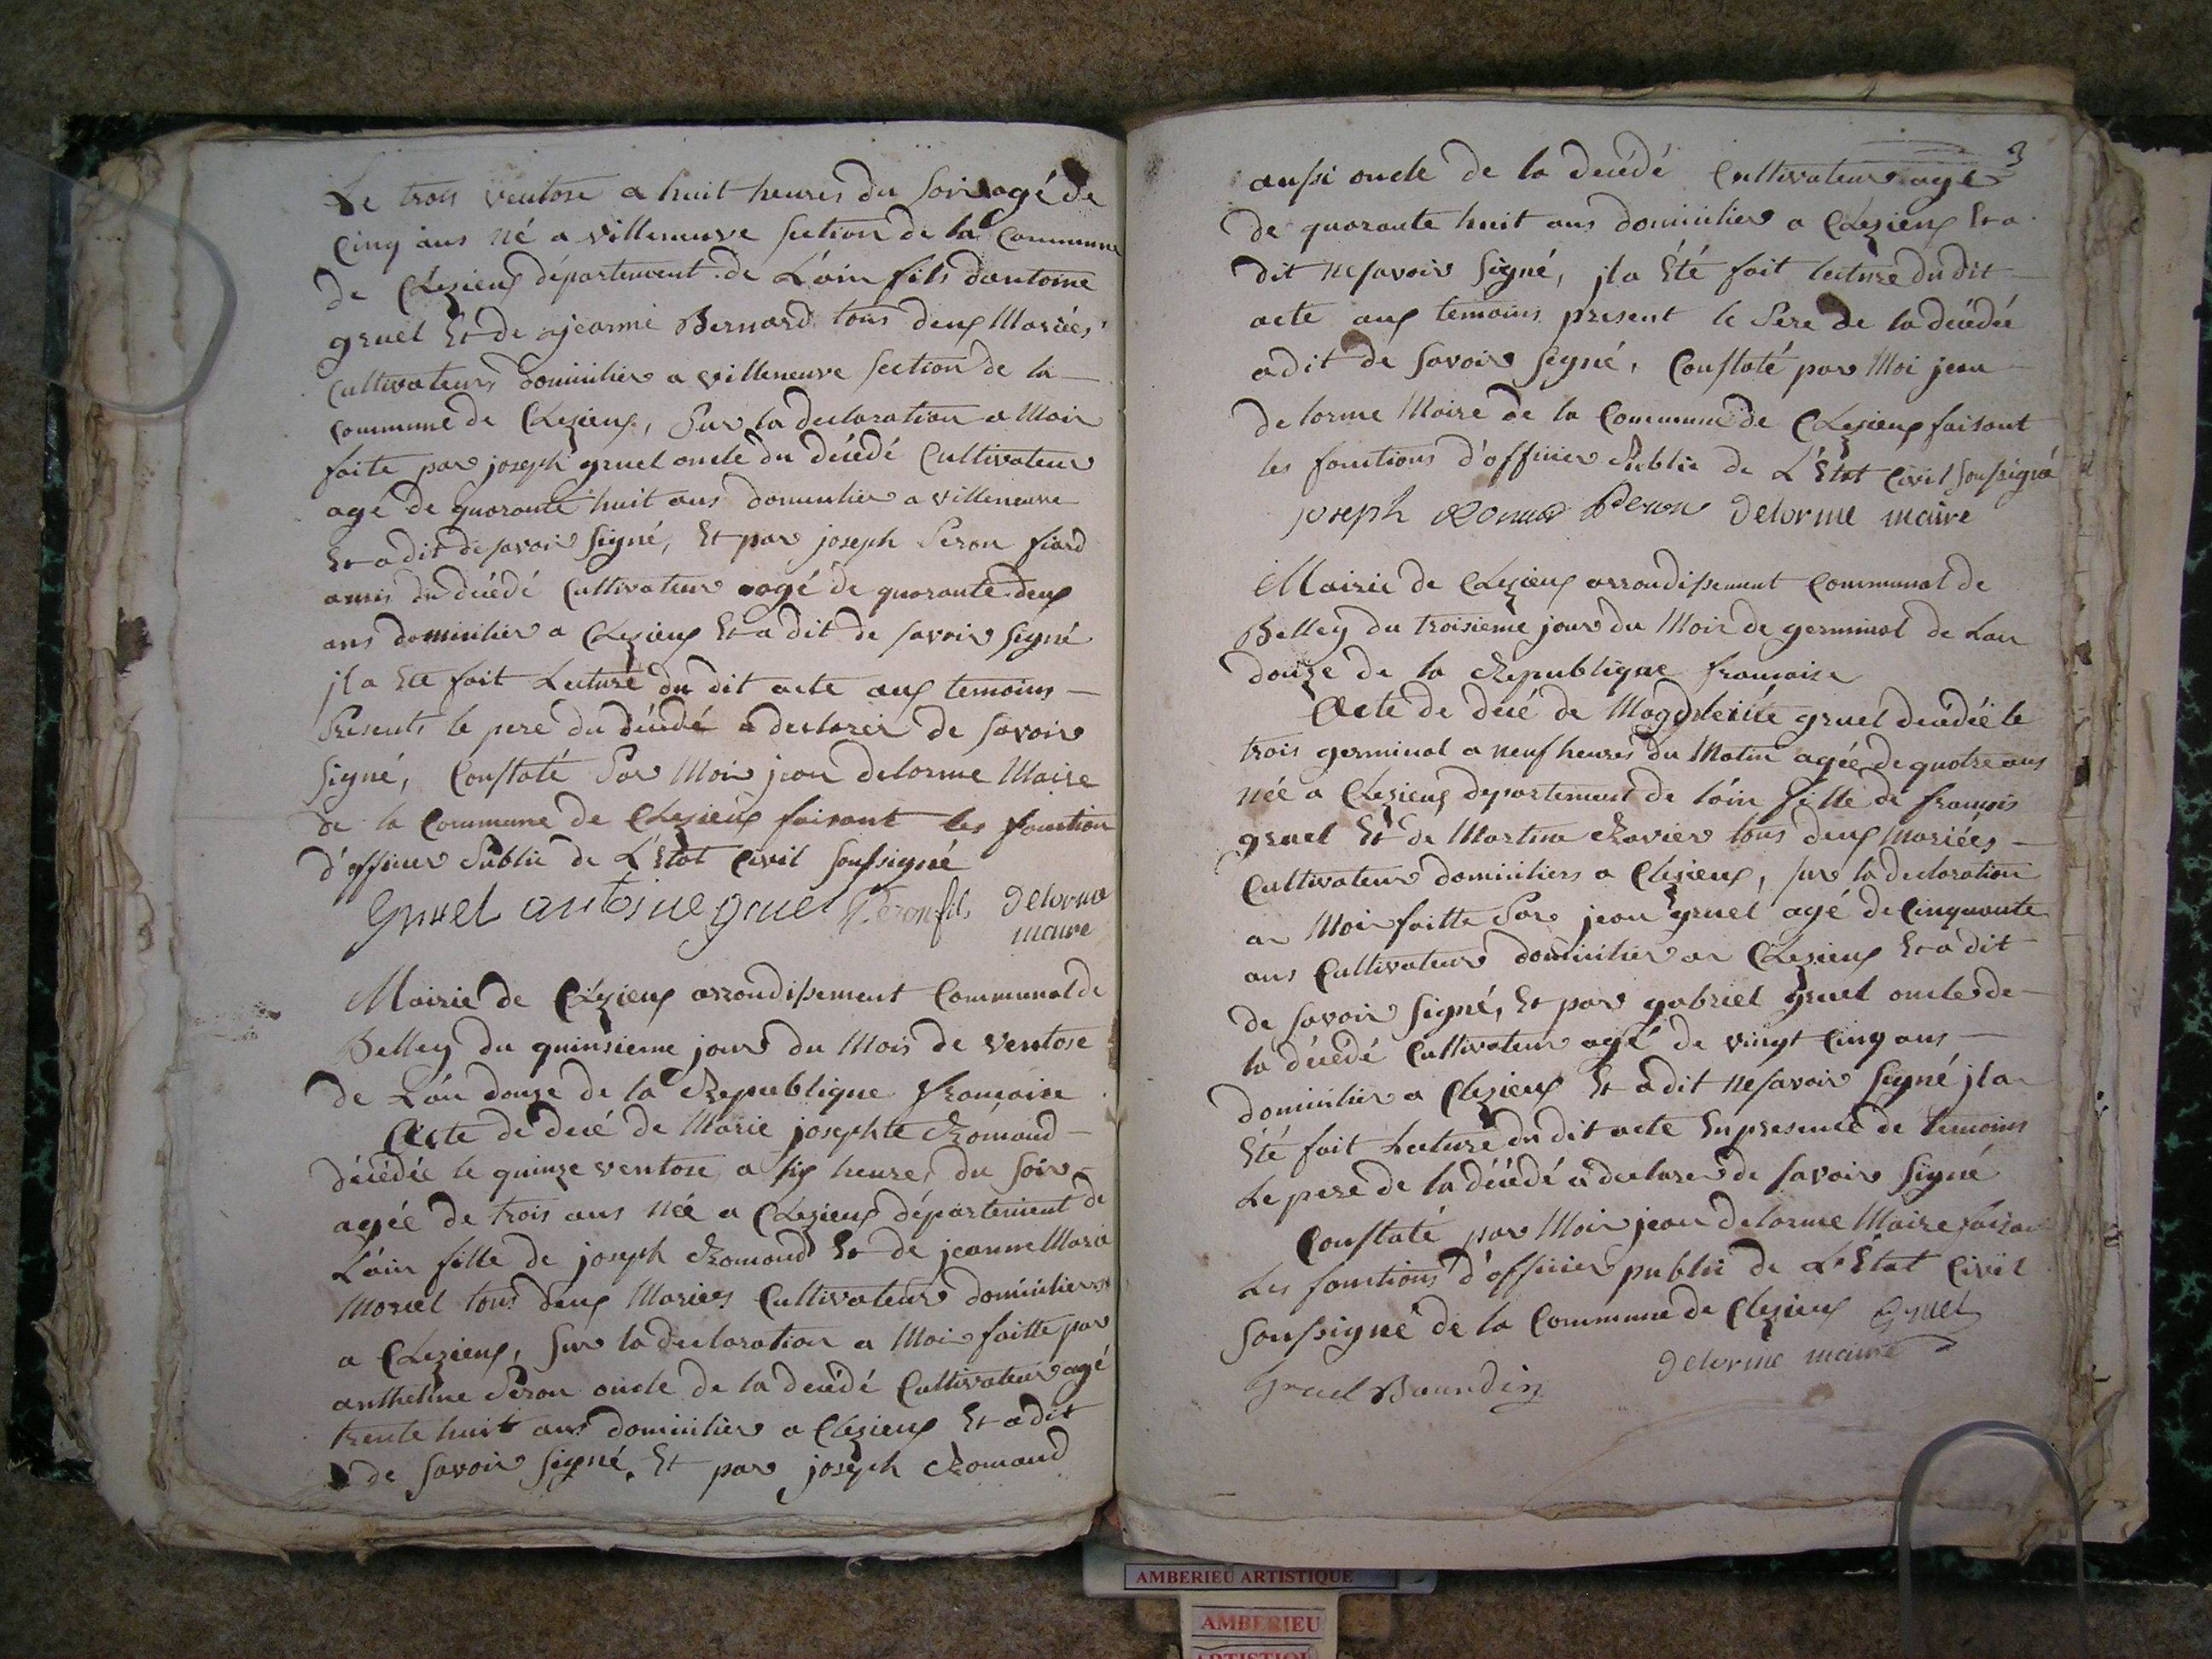 Le trois ventose a huit heures du soir agé de
cinq ans né a villeneuve section de la commune
de Clezieux département de L'ain fils dantoine
gruel Et de jeanne Bernard tous deux Mariées
cultivateurs domicilier a villeneuve section de la
commune de Clezieux, Sur la declaration a Moir
faite par joseph gruel oncle du décédé Cultivateur
agé de quarante huit ans domicilier a villeneuve
Et a dit de savoir signé, Et par joseph Peron fiard
amis du décédé Cultivateur agé de quarante deux
ans domicilier a Clezieux Et a dit de savoir signé
jl a Eté fait Lecture du dit acte aux temoins
Presents le pere du décédé a declarer de savoir
signé, Constaté Par Moir jean delorme Maire
de la Commune de Clezieux faisant les fonction
d'officier Public de L'Etat Civil soussigné
Gruel antoine gruel Peron fils Delorme
maire
Mairie de Clezieux arrondissement Communal de
Belley du quinsieme jour du Mois de ventose
de L'an douze de la Republique francaise
Acte de décé de Marie josephte Romand
décédée le quinze ventose a six heures du soir
agée de trois ans née a Clezieux département de
L'ain fille de joseph Romand Et de jeanne Maria
Moriel tous deux Mariées Cultivateur domiciliers
a Clezieux, sur la declaration a Moi faitte par
anthelme Peron oncle de la décédé Cultivateur agé
trente huit ans domicilier a Clezieux Et a dit
de savoir signé. Et par joseph Romand
3
aussi oncle de la décédé Cultivateur agé
de quarante huit ans domicilier a Clezieux Et a
dit ne savoir signé, jl a Eté fait lecture du dit
acte aux temoins present le Pere de la décédée
a dit de savoir signé, Constaté par Moi jean
delorme Maire de la Commune de Clezieux faisant
les fonctions d'officier Public de L'Etat Civil soussigné
joseph Romand Peron Delorme maire
Mairie de Clezieux arrondissement Communal de
Belley du troisieme jour du Moir de germinal de Lan
douze de la Republique francaise
Acte de décé de Magdeleine gruel décédée le
trois germinal a neuf heures du Matin agée de quatre ans
née a Clezieux departement de l'ain fille de francois
gruel Et de Martina Ravier tous deux Mariées
Cultivateur domiciliers a Clezieux, sur la declaration
a Moir faitte Par jean gruel agé de Cinquante
ans Cultivateur domicilier a Clezieux Et a dit
de savoir signé, Et par gabriel gruel oncle de
la décédé Cultivateur agé de vingt cinq ans
domicilier a Clezieux Et a dit ne savoir signé jl a
Eté fait Lecture du dit acte En presence de temoins
Le pere de la décédé a declarer de savoir signé
Constaté par Moir jean delorme Maire faisan
Les fonctions d'officier public de L'Etat Civil
soussigné de la Commune de Clezieux Gruel
Delorme maire
Gruel Bourdin
AMBERIEU ARTISTIQUE
AMBERIEU
ARTISTIQUE